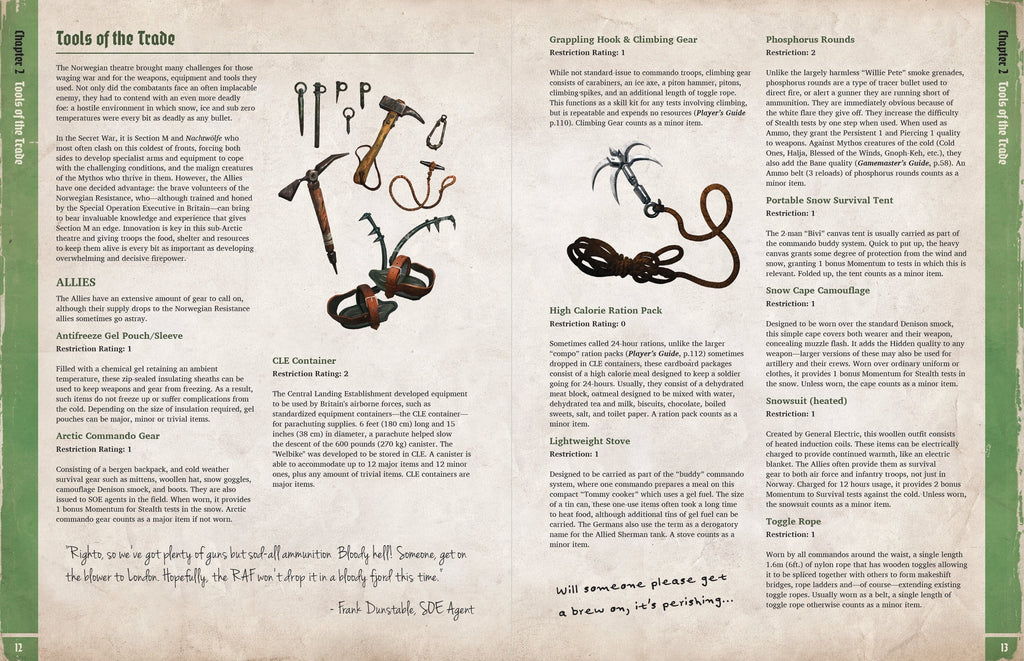 Chapter 2 Tools of the Trade
Tools of the Trade
The Norwegian theatre brought many challenges for those
waging war and for the weapons, equipment and tools they
used. Not only did the combatants face an often implacable
enemy, they had to contend with an even more deadly
foe: a hostile environment in which snow, ice and sub zero
temperatures were every bit as deadly as any bullet.
In the Secret War, it is Section M and Nachtwölfe who
most often clash on this coldest of fronts, forcing both
sides to develop specialist arms and equipment to cope
with the challenging conditions, and the malign creatures
of the Mythos who thrive in them. However, the Allies
have one decided advantage: the brave volunteers of the
Norwegian Resistance, who—although trained and honed
by the Special Operation Executive in Britain—can bring
to bear invaluable knowledge and experience that gives
Section M an edge. Innovation is key in this sub-Arctic
theatre and giving troops the food, shelter and resources
to keep them alive is every bit as important as developing
overwhelming and decisive firepower.
ALLIES
The Allies have an extensive amount of gear to call on,
although their supply drops to the Norwegian Resistance
allies sometimes go astray.
Antifreeze Gel Pouch/Sleeve
Restriction Rating: 1
Filled with a chemical gel retaining an ambient
temperature, these zip-sealed insulating sheaths can be
used to keep weapons and gear from freezing. As a result,
such items do not freeze up or suffer complications from
the cold. Depending on the size of insulation required, gel
pouches can be major, minor or trivial items.
Arctic Commando Gear
Restriction Rating: 1
Consisting of a bergen backpack, and cold weather
survival gear such as mittens, woollen hat, snow goggles,
camouflage Denison smock, and boots. They are also
issued to SOE agents in the field. When worn, it provides
1 bonus Momentum for Stealth tests in the snow. Arctic
commando gear counts as a major item if not worn.
CLE Container
Restriction Rating: 2
The Central Landing Establishment developed equipment
to be used by Britain's airborne forces, such as
standardized equipment containers—the CLE container—
for parachuting supplies. 6 feet (180 cm) long and 15
inches (38 cm) in diameter, a parachute helped slow
the descent of the 600 pounds (270 kg) canister. The
"Welbike" was developed to be stored in CLE. A canister is
able to accommodate up to 12 major items and 12 minor
ones, plus any amount of trivial items. CLE containers are
major items.
"Righto, so we've got plenty of guns but sod-all ammunition. Bloody hell! Someone, get on
the blower to London. Hopefully, the RAF won't drop it in a bloody fjord this time."
- Frank Dunstable, SOE Agent
12
Grappling Hook & Climbing Gear
Restriction Rating: 1
While not standard issue to commando troops, climbing gear
consists of carabiners, an ice axe, a piton hammer, pitons,
climbing-spikes, and an additional length of toggle rope.
This functions as a skill kit for any tests involving climbing,
but is repeatable and expends no resources (Player's Guide
p.110). Climbing Gear counts as a minor item.
High Calorie Ration Pack
Restriction Rating: 0
Sometimes called 24-hour rations, unlike the larger
“compo” ration packs (Player's Guide, p.112) sometimes
dropped in CLE containers, these cardboard packages
consist of a high calorie meal designed to keep a soldier
going for 24-hours. Usually, they consist of a dehydrated
meat block, oatmeal designed to be mixed with water,
dehydrated tea and milk, biscuits, chocolate, boiled
sweets, salt, and toilet paper. A ration pack counts as a
minor item.
Lightweight Stove
Restriction: 1
Designed to be carried as part of the “buddy” commando
system, where one commando prepares a meal on this
compact “Tommy cooker” which uses a gel fuel. The size
of a tin can, these one-use items often took a long time
to heat food, although additional tins of gel fuel can be
carried. The Germans also use the term as a derogatory
name for the Allied Sherman tank. A stove counts as a
minor item.
Will someone please get
a brew on, it's perishing...
Phosphorus Rounds
Restriction: 2
Unlike the largely harmless “Willie Pete” smoke grenades,
phosphorus rounds are a type of tracer bullet used to
direct fire, or alert a gunner they are running short of
ammunition. They are immediately obvious because of
the white flare they give off. They increase the difficulty
of Stealth tests by one step when used. When used as
Ammo, they grant the Persistent 1 and Piercing 1 quality
to weapons. Against Mythos creatures of the cold (Cold
Ones, Halja, Blessed of the Winds, Gnoph-Keh, etc.), they
also add the Bane quality (Gamemaster's Guide, p.58). An
Ammo belt (3 reloads) of phosphorus rounds counts as a
minor item.
Portable Snow Survival Tent
Restriction: 1
The 2-man “Bivi” canvas tent is usually carried as part of
the commando buddy system. Quick to put up, the heavy
canvas grants some degree of protection from the wind and
snow, granting 1 bonus Momentum to tests in which this is
relevant. Folded up, the tent counts as a minor item.
Snow Cape Camouflage
Restriction: 1
Designed to be worn over the standard Denison smock,
this simple cape covers both wearer and their weapon,
concealing muzzle flash. It adds the Hidden quality to any
weapon—larger versions of these may also be used for
artillery and their crews. Worn over ordinary uniform or
clothes, it provides 1 bonus Momentum for Stealth tests in
the snow. Unless worn, the cape counts as a minor item.
Snowsuit (heated)
Restriction: 1
Created by General Electric, this woollen outfit consists
of heated induction coils. These items can be electrically
charged to provide continued warmth, like an electric
blanket. The Allies often provide them as survival
gear to both air force and infantry troops, not just in
Norway. Charged for 12 hours usage, it provides 2 bonus
Momentum to Survival tests against the cold. Unless worn,
the snowsuit counts as a minor item.
Toggle Rope
Restriction: 1
Worn by all commandos around the waist, a single length
1.6m (6ft.) of nylon rope that has wooden toggles allowing
it to be spliced together with others to form makeshift
bridges, rope ladders and—of course—extending existing
toggle ropes. Usually worn as a belt, a single length of
toggle rope otherwise counts as a minor item.
Chapter 2 Tools of the Trade
13